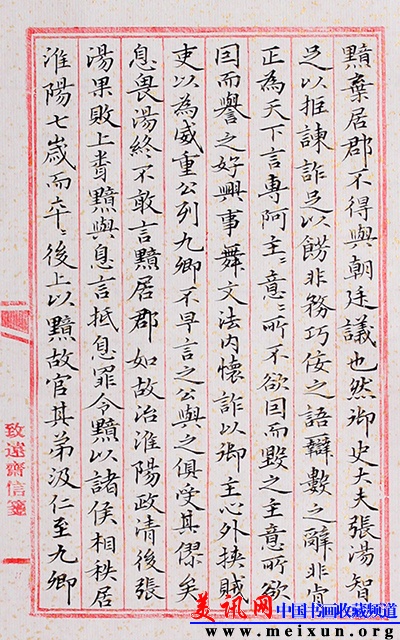 黯棄居郡不得與朝廷議也然御史大夫張湯智
足以拒諫詐足以餝非務巧佞之語辯數之辭非肯
正為天下言專阿主〻意〻所不欲因而毀之主意所欲
因而譽之好興事舞文法內懷詐以御主心外挾賊
吏以為威重公列九卿不早言之公與之俱受其僇矣
息畏湯終不敢言黯居郡如故治淮陽政清後張
湯果敗上聞黯與息言抵息罪令黯以諸侯相秩居
淮陽七歲而卒〻後上以黯故官其弟汲仁至九卿
致遠齋信箋
美讯网 中国书画收藏频道
www.meixun.org